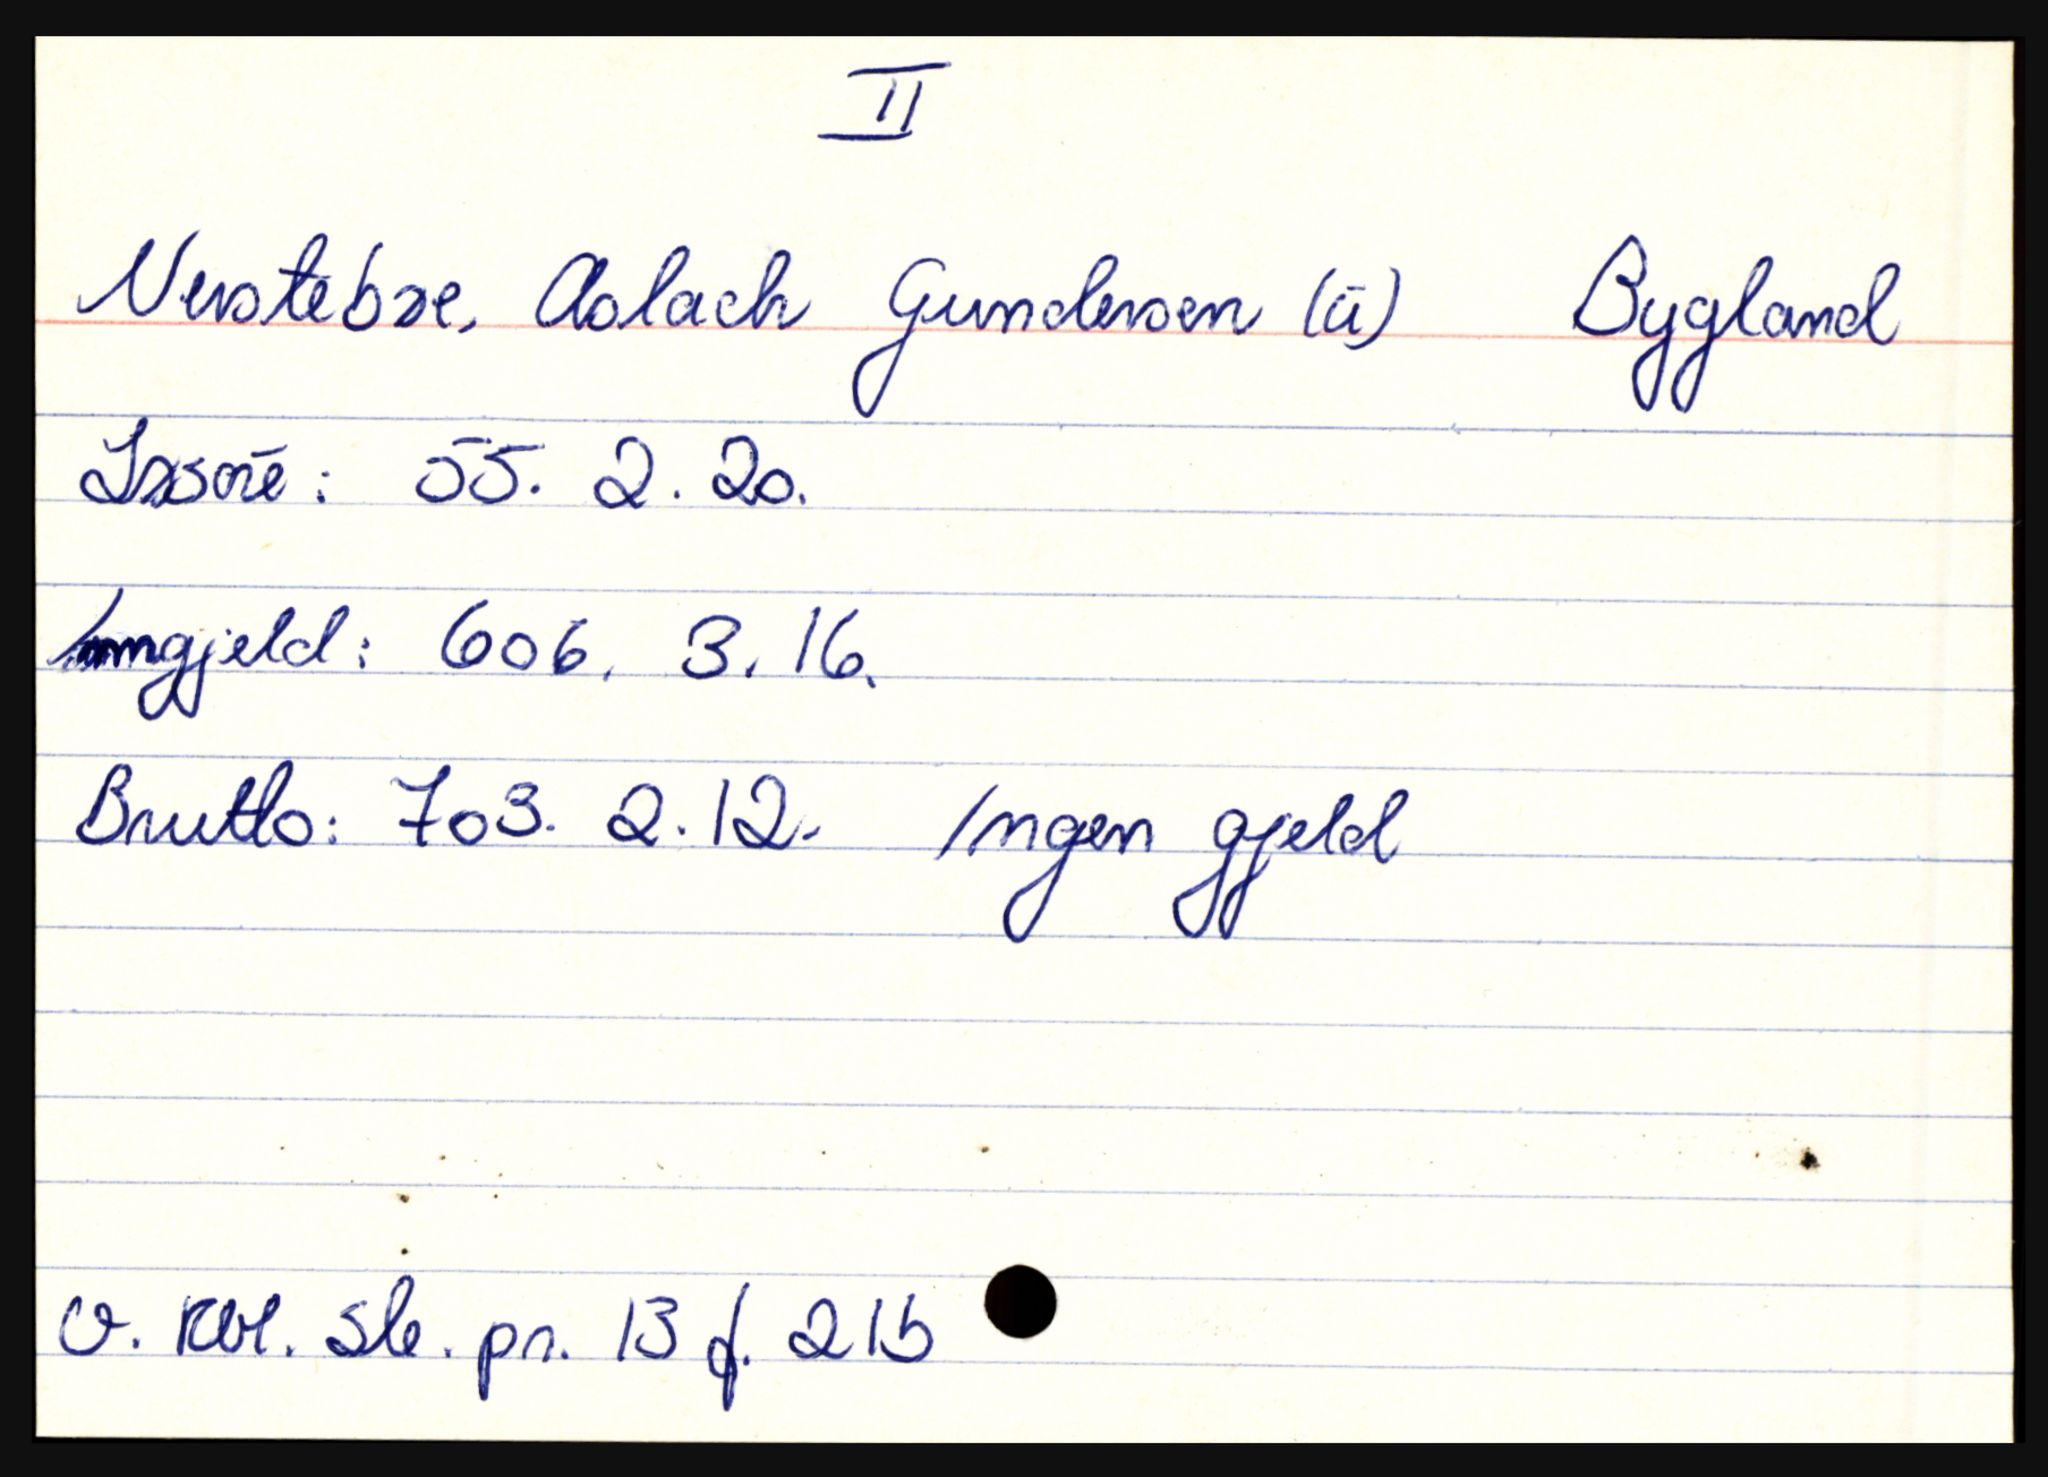 II
Nerstebøe, Aslach Gundersen (ü) Bygland
Løsøre: 55. 2. 20.
Inngjeld: 606. 3. 16.
Brutto: 703. 2. 12. Ingen gjeld
V. Rbl. sk. pr. 13 f. 21b